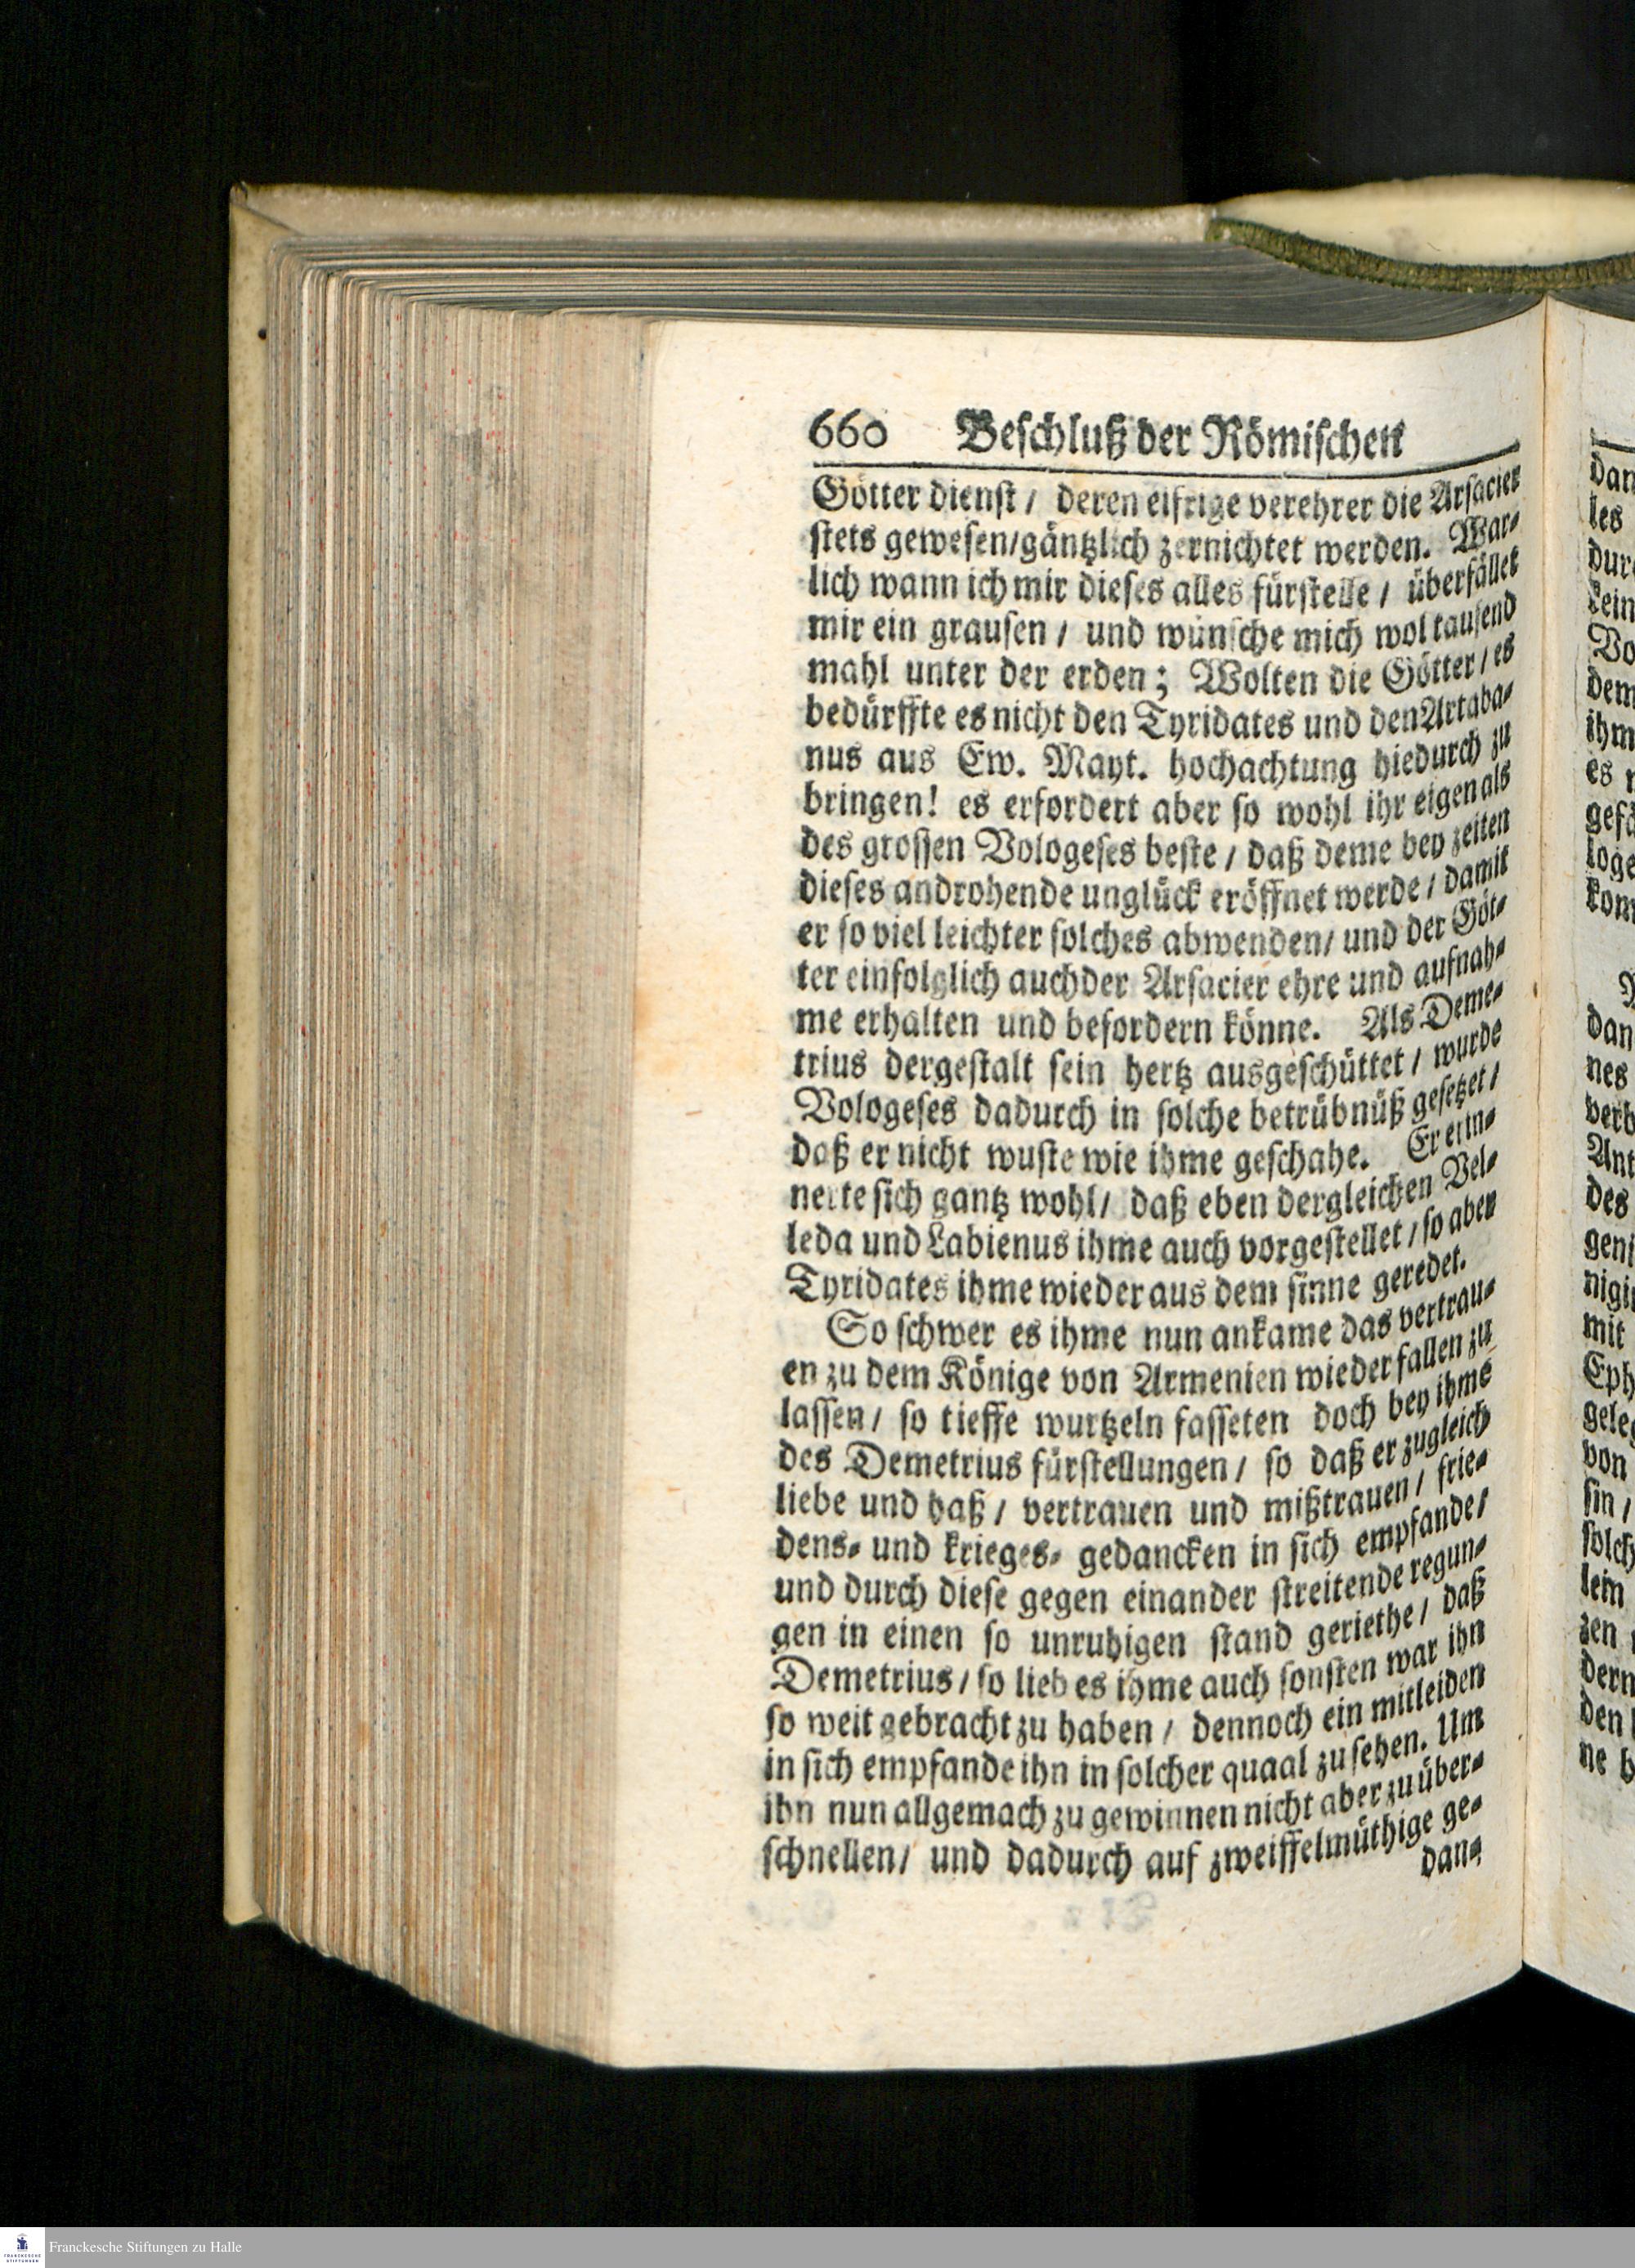 660 Beschluß der Römischen
Götter dienst / deren eifrige verehrer die Arsacier
stets gewesen/gäntzlich zernichtet werden. War-
lich wann ich mir dieses alles fürstelle / überfället
mir ein grausen / und wünsche mich wol tausend
mahl unter der erden; Wolten die Götter / es
bedürffte es nicht den Tyridates und den Artaba-
nus aus Ew. Mayt. hochachtung hiedurch zu
bringen! es erfordert aber so wohl ihr eigen als
des grossen Vologeses beste / daß deme bey zeiten
dieses androhende unglück eröffnet werde / damit
er so viel leichter solches abwenden/ und der Göt-
ter einfolglich auch der Arsacier ehre und aufnah-
me erhalten und befordern könne. Als Deme-
trius dergestalt sein hertz ausgeschüttet / wurde
Vologeses dadurch in solche betrübnüß gesetzet /
daß er nicht wuste wie ihme geschahe. Er erin-
nerte sich gantz wohl/ daß eben dergleichen Vel-
leda und Labienus ihme auch vorgestellet / so aber
Tyridates ihme wieder aus dem sinne geredet.
So schwer es ihme nun ankame das vertrau-
en zu dem Könige von Armenien wieder fallen zu
lassen / so tieffe wurtzeln fasseten doch bey ihme
des Demetrius fürstellungen / so daß er zugleich
liebe und haß / vertrauen und mißtrauen / frie-
dens- und krieges- gedancken in sich empfande/
und durch diese gegen einander streitende regun-
gen in einen so unruhigen stand geriethe / daß
Demetrius / so lieb es ihme auch sonsten war ihn
so weit gebracht zu haben / dennoch ein mitleiden
in sich empfande ihn in solcher quaal zu sehen. Um
ihn nun allgemach zu gewinnen nicht aber zu über-
schnellen/ und dadurch auf zweiffelmüthige ge-
dan-
dan
les
dur
kein
Vo
dem
ihm
es
gefä
loge
kom
dan
nes
verb
Ant
des
geni
nigi
mit
Eph
geleg
von
sin /
solch
lein
zen
dern
den
ne b
Franckesche Stiftungen zu Halle